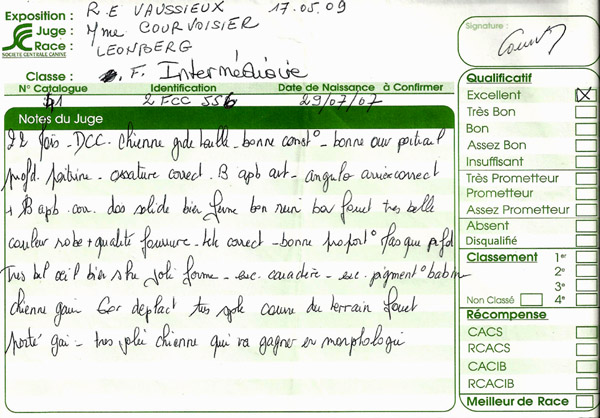 Exposition : R.E VAUSSIEUX 17.05.09
Juge : Mme COURVOISIER
Race : LEONBERG
SOCIETE CENTRALE CANINE
Classe : F. Intermédiaire
N° Catalogue Identification Date de Naissance à Confirmer
2 FCC 29/07/07
Notes du Juge
22 mois - DCC - chienne gde taille - bonne const° - bonne ouv poitrail
profd. poitrine - ossature correct. B apb ant - angulo arrière correct
+ B apb. dos solide bien ferme bon rein bon fouet très belle
couleur robe + qualité fourrure - tête correct - bonne proport°
Très bel oeil bien joli forme - exc. caractère - exc. pigment°
chienne gaie très couvre du terrain fouet
porté gai - très jolie chienne qui va gagner en morphologie
Signature :
Qualificatif
Excellent X
Très Bon
Bon
Assez Bon
Insuffisant
Très Prometteur
Prometteur
Assez Prometteur
Absent
Disqualifié
Classement 1er
2e
3e
Non Classé 4e
Récompense
CACS
RCACS
CACIB
RCACIB
Meilleur de Race